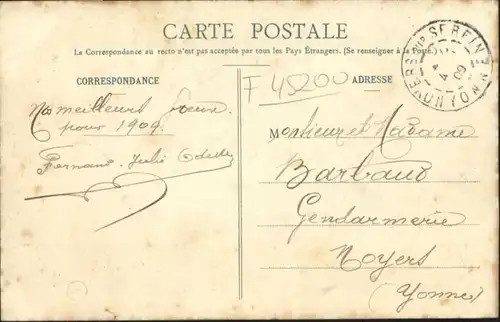 CARTE POSTALE
La Correspondance au recto n'est pas acceptée par tous les Pays Étrangers. (Se renseigner à la Poste.)
CORRESPONDANCE
ADRESSE
F 45200
Nos meilleurs vœux
pour 1909.
Fernand. Julie
Monsieur et Madame
Barbaud
Gendarmerie
Noyers
(Yonne)
NOYERS SR SEREIN
YONNE
09